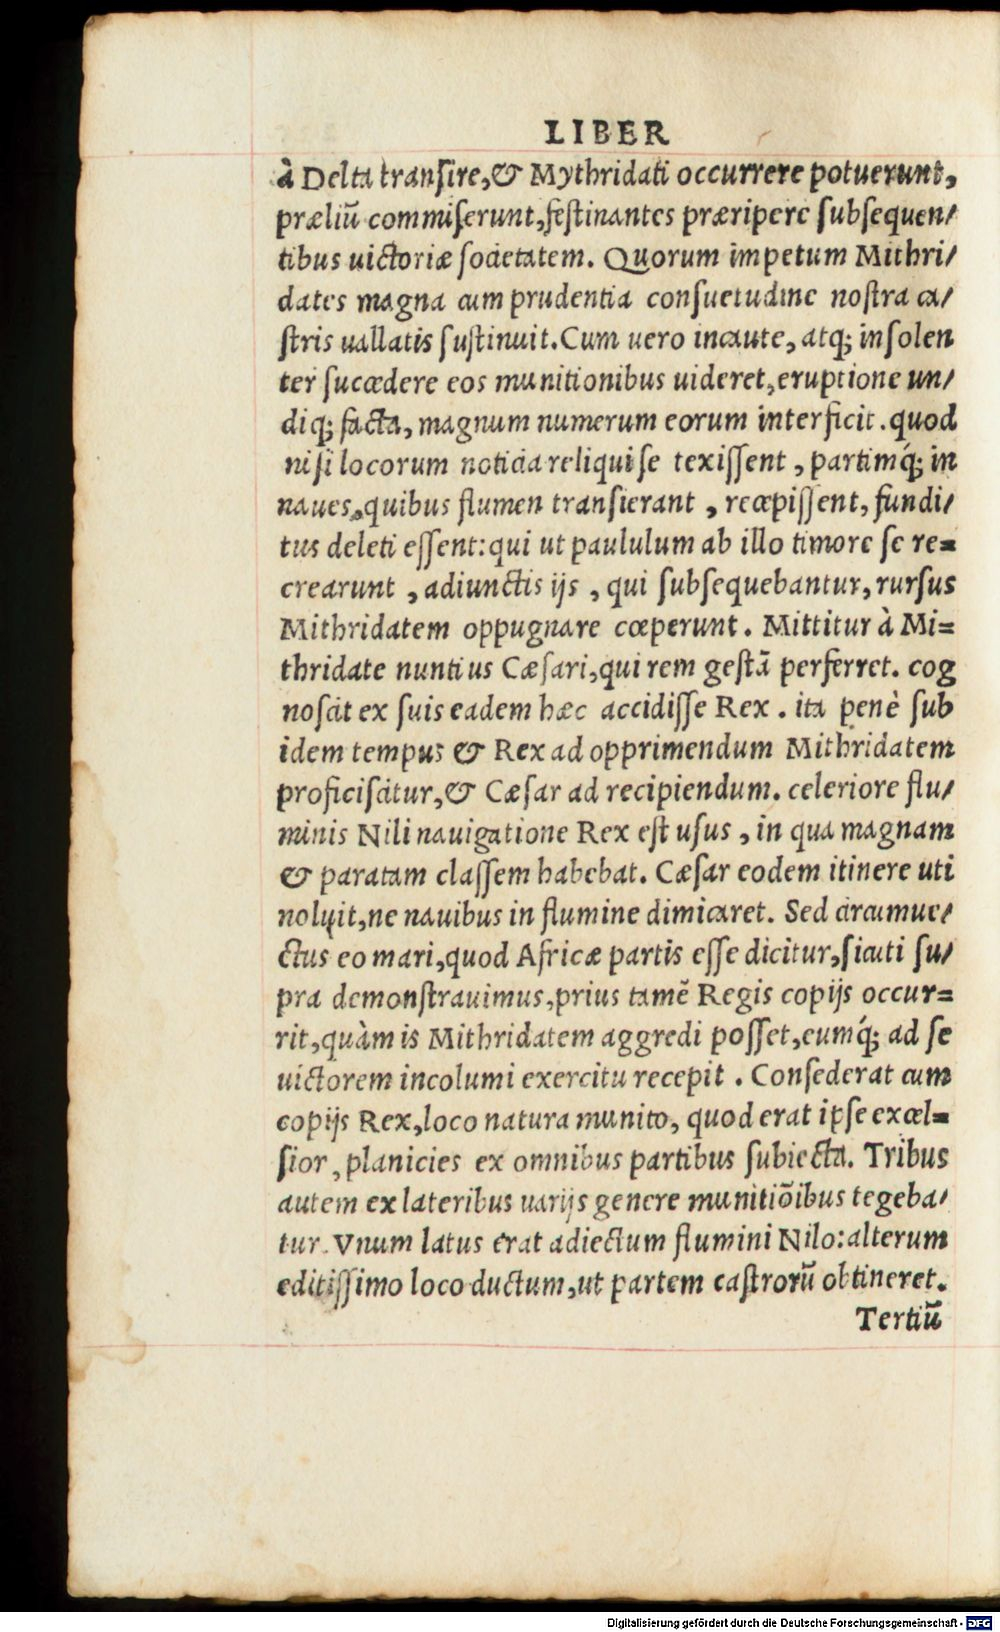 LIBER
à Delta transire, & Mythridati occurrere potuerunt,
præliū commiserunt, festinantes præripere subsequen/
tibus uictoriæ societatem. Quorum impetum Mithri/
dates magna cum prudentia consuetudine nostra ca/
stris uallatis sustinuit. Cum uero incaute, atq; insolen
ter succedere eos munitionibus uideret, eruptione un/
diq; facta, magnum numerum eorum interficit. quod
nisi locorum noticia reliqui se texissent, partimq́; in
naues, quibus flumen transierant, recepissent, fundi/
tus deleti essent: qui ut paululum ab illo timore se re=
crearunt, adiunctis ijs, qui subsequebantur, rursus
Mithridatem oppugnare cœperunt. Mittitur à Mi=
thridate nuntius Cæsari, qui rem gestā perferret. cog
noscit ex suis eadem hæc accidisse Rex. ita penè sub
idem tempus & Rex ad opprimendum Mithridatem
proficiscitur, & Cæsar ad recipiendum. celeriore flu/
minis Nili nauigatione Rex est usus, in qua magnam
& paratam classem habebat. Cæsar eodem itinere uti
noluit, ne nauibus in flumine dimicaret. Sed circumue/
ctus eo mari, quod Africæ partis esse dicitur, sicuti su/
pra demonstrauimus, prius tamē Regis copijs occur=
rit, quàm is Mithridatem aggredi posset, eumq́; ad se
uictorem incolumi exercitu recepit. Consederat cum
copijs Rex, loco natura munito, quod erat ipse excel=
sior, planicies ex omnibus partibus subiecta. Tribus
autem ex lateribus uarijs genere munitiōibus tegeba/
tur. Vnum latus erat adiectum flumini Nilo: alterum
editissimo loco ductum, ut partem castrorū obtineret.
Tertiū
Digitalisierung gefördert durch die Deutsche Forschungsgemeinschaft - DFG